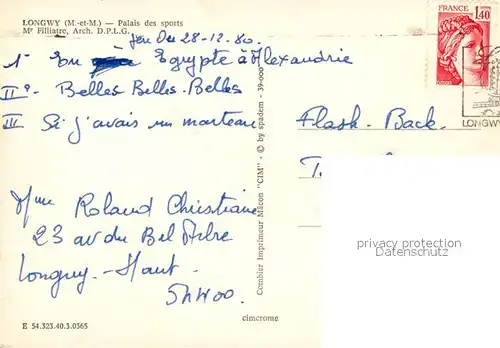 LONGWY (M.-et-M.) — Palais des sports
Mr Filliatre, Arch. D.P.L.G.
Jeu Du 28-12.80.
1° En Egypte à Alexandrie
II° Belles Belles-Belles
III Si j'avais un marteau
Mme Roland Christiane
23 av du Bel Arbre
Longwy-Haut
54400.
E 54.323.40.3.0365
Combier Imprimeur Mâcon "CIM" - © by spadem - 39-000
cimcrome
FRANCE
1,40
LONGWY
Flash-Back.
T.
privacy protection
watermark